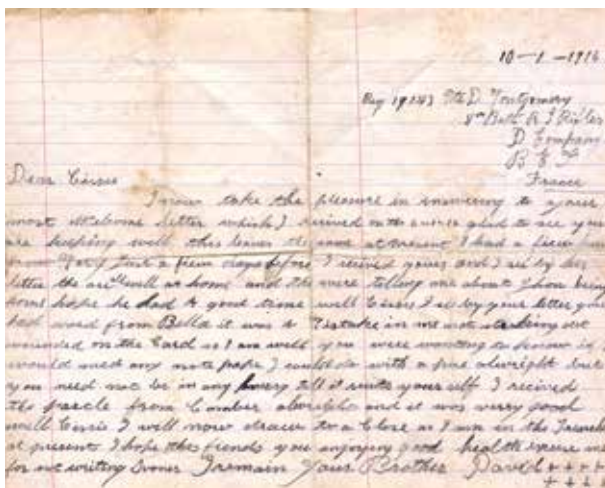 10-1-1916
Reg 19143 Pte D Montgomery
8th Batt R I Rifles
D Company
B E F
France
Dear Cissie
I now take the pleasure in answering to your
most welcome letter which I recived on the glad to see you
are keeping well this leaves the same at present I had a
just a few days before I recived yours and I see by her
letter the are all well at home and the were telling me about John being
home hope he had a good time well Cissie I see by your letter you
had word from Bella it was a mistake in me not
wounded on the Card as I am well you were wanting to know if I
would need any note pape I could do with a fue alwright but
you need not be in any hurry till it suits your self I recived
the parcle from Comber alwright and it was verry good
well Cissie I will now draw to a Close as I am in the Trenches
at present I hope this finds you enjoying good health excuse me
for not writing sooner I remain Your Brother David ++++
++++